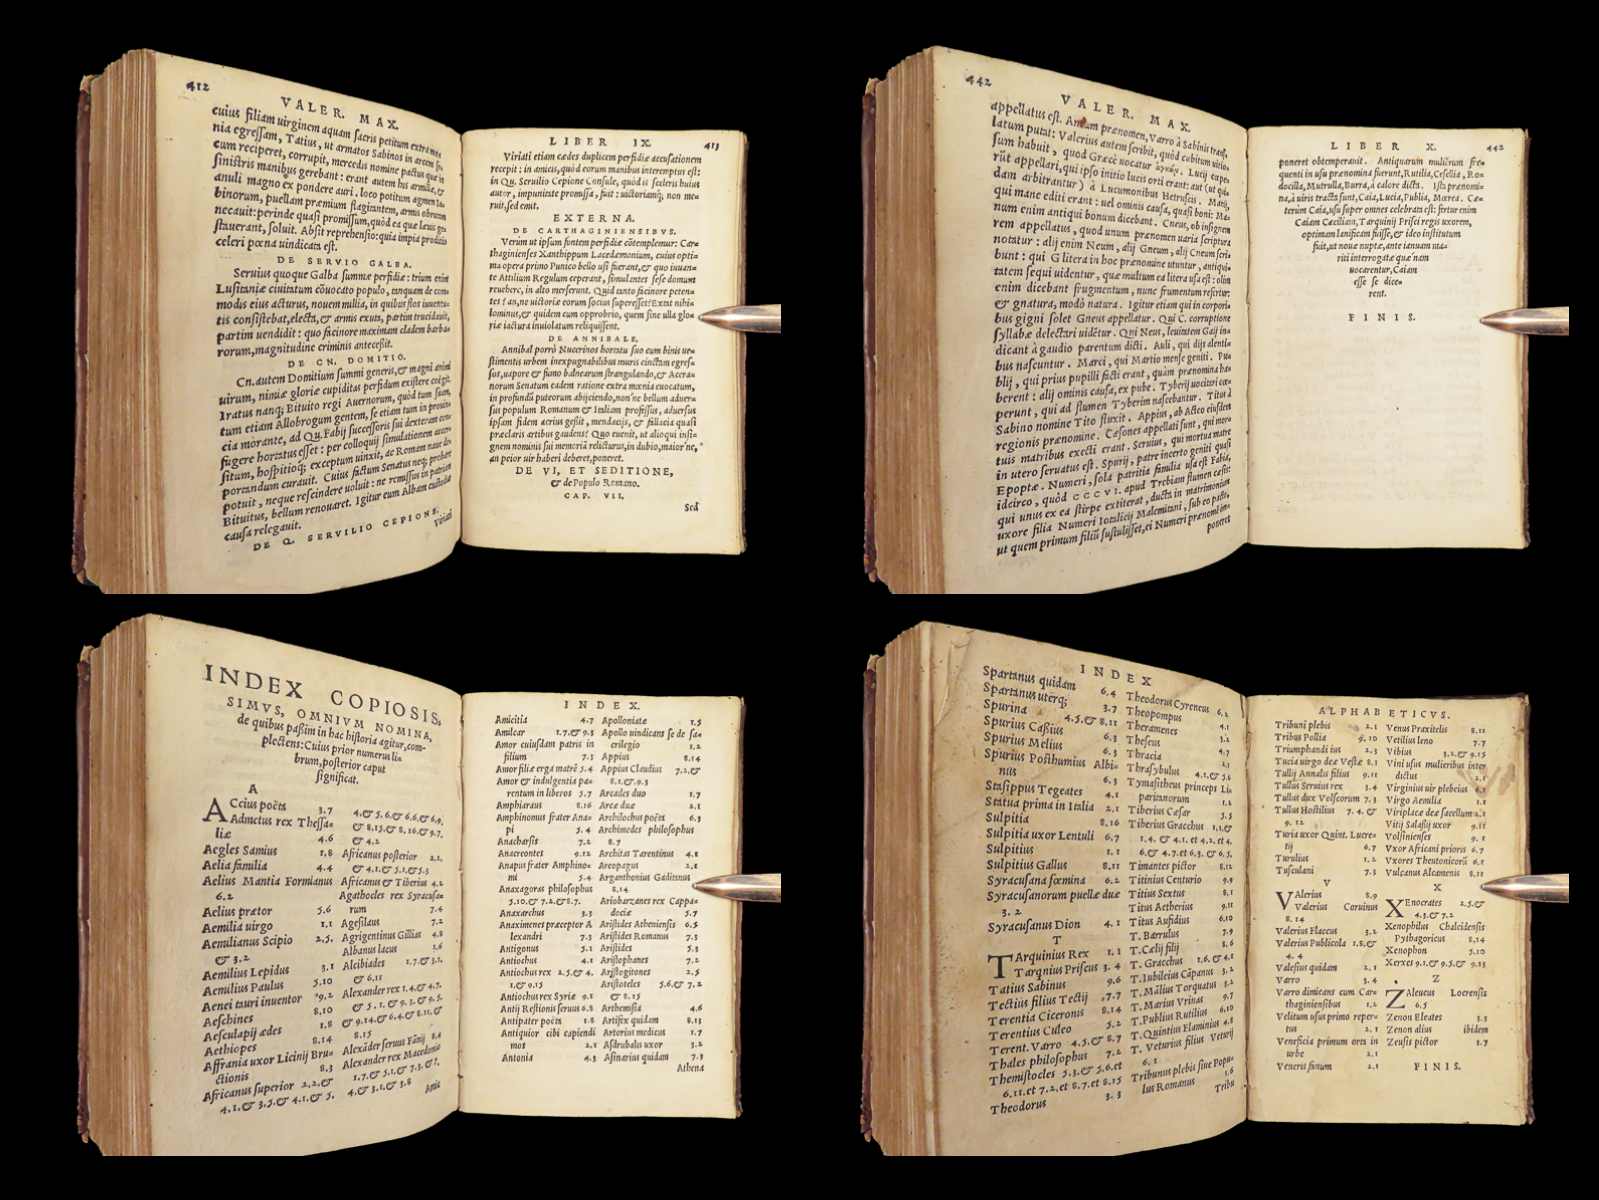 412
VALER. MAX.
cuius filiam uirginem aquam sacris petitum extra mœ-
nia egressam, Tatius, ut armatos Sabinos in arcem se-
cum reciperet, corrupit, mercedis nomine pactus quæ in
sinistris manibus gerebant: erant autem his armillæ, &
anuli magno ex pondere auri. loco potitum agmen Sa-
binorum, puellam præmium flagitantem, armis obrutam
necauit: perinde quasi promissum, quòd ea quæ læua ge-
stauerant, soluit. Absit reprehensio: quia impia proditio
celeri pœna uindicata est.
DE SERVIO GALBA.
Seruius quoque Galba summæ perfidiæ: trium enim
Lusitaniæ ciuitatum cōuocato populo, tanquam de com-
modis eius acturus, nouem millia, in quibus flos iuuentu-
tis consistebat, electa, & armis exuta, partim trucidauit,
partim uendidit: quo facinore maximam cladem barba-
rorum, magnitudine criminis antecessit.
DE CN. DOMITIO.
Cn. autem Domitium summi generis, & magni animi
uirum, nimiæ gloriæ cupiditas perfidum existere coëgit.
Iratus nanq; Bituito regi Auernorum, quòd tum suam,
tum etiam Allobrogum gentem, se etiam tum in prouin-
cia morante, ad Qu. Fabij successoris sui dexteram con-
fugere hortatus esset: per colloquij simulationem accer-
situm, hospitioq; exceptum uinxit, ac Romam naue de-
portandum curauit. Cuius factum Senatus neq; probare
potuit, neque rescindere uoluit: ne remissus in patriam
Bituitus, bellum renouaret. Igitur eum Albam custodiæ
causa relegauit.
DE Q. SERVILIO CEPIONE.
Viriati
LIBER IX. 413
Viriati etiam cædes duplicem perfidiæ accusationem
recepit: in amicis, quòd eorum manibus interemptus est:
in Qu. Seruilio Cepione Consule, quòd is sceleris huius
autor, impunitate promissa, fuit: uictoriamq; non me-
ruit, sed emit.
EXTERNA.
DE CARTHAGINIENSIBVS.
Verùm ut ipsum fontem perfidiæ cōtemplemur: Car-
thaginienses Xanthippum Lacedæmonium, cuius opti-
ma opera primo Punico bello usi fuerant, & quo iuuan-
te Attilium Regulum ceperant, simulantes sese domum
reuehere, in alto merserunt. Quid tanto facinore peten-
tes? an, ne uictoriæ eorum socius superesset? Extat nihi-
lominus, & quidem cum opprobrio, quem sine ulla glo-
riæ iactura inuiolatum reliquissent.
DE ANNIBALE.
Annibal porrò Nucerinos hortatu suo cum binis ue-
stimentis urbem inexpugnabilibus muris cinctam egres-
sos, uapore & fumo balnearum strangulando, & Acerra-
norum Senatum eadem ratione extra mœnia euocatum,
in profundū puteorum abijciendo, non'ne bellum aduer-
sus populum Romanum & Italiam professus, aduersus
ipsam fidem acrius gessit, mendacijs, & fallacia quasi
præclaris artibus gaudens? Quo euenit, ut alioqui insi-
gnem nominis sui memoriā relicturus, in dubio, maior'ne,
an peior uir haberi deberet, poneret.
DE VI, ET SEDITIONE,
& de Populo Romano.
CAP. VII.
Sed
442
VALER. MAX.
appellatus est. Antium prænomen, Varro à Sabinis trans-
latum putat: Valerius autem scribit, quòd cubitum uitio-
sum habuit, quod Græcè uocatur ἀγκών. Lucij cœpe-
rūt appellari, qui ipso initio lucis orti erant: aut (ut qui-
dam arbitrantur) à Lucumonibus Hetruscis. Manij,
qui mane editi erant: uel ominis causa, quasi boni: Ma-
num enim antiqui bonum dicebant. Cneus, ob insigne
rem appellatus, quod unum prænomen uaria scriptura
notatur: alij enim Neum, alij Gneum, alij Cneum scri-
bunt: qui G litera in hoc prænomine utuntur, antiqui-
tatem sequi uidentur, quæ multum ea litera usa est: olim
enim dicebant frugmentum, nunc frumentum refertur:
& gnatura, modò natura. Igitur etiam qui in corpori-
bus gigni solet Gneus appellatur. Qui C. corruptione
syllabæ delectari uidētur. Qui Neus, leuitatem Gaij in-
dicant à gaudio parentum dicti. Auli, qui dijs alenti-
bus nascuntur. Marci, qui Martio mense geniti. Pu-
blij, qui prius pupilli facti erant, quàm prænomina ha-
berent: alij ominis causa, ex pube. Tyberij uocitari cœ-
perunt, qui ad flumen Tyberim nascebantur. Titus à
Sabino nomine Tito fluxit. Appius, ab Acteo eiusdem
regionis prænomine. Cæsones appellati sunt, qui mor-
tuis matribus execti erant. Seruius, qui mortua matre
in utero seruatus est. Spurij, patre incerto geniti quasi
Epoptæ. Numeri, sola patritia familia usa est Fabia,
idcirco, quòd CCCVI. apud Trebiam flumen cæsis:
qui unus ex ea stirpe extiterat, ducta in matrimonium
uxore filia Numeri Iotalicij Malemitani, sub eo pacto,
ut quem primum filiū sustulisset, ei Numeri prænomen im-
poneret
LIBER X. 442
poneret obtemperauit. Antiquarum mulierum fre-
quenti in usu prænomina fuerunt, Rutilia, Cesellia, Ro-
docilla, Mutrulla, Burra, à calore dicta. Ista prænomi-
na, à uiris tracta sunt, Caia, Lucia, Publia, Mœrea. Cæ-
terùm Caia, usu super omnes celebrata est: fertur enim
Caiam Cæciliam, Tarquinij Prisci regis uxorem,
optimam lanificam fuisse, & ideo institutum
fuit, ut nouæ nuptæ, ante ianuam ma-
riti interrogatæ quæ'nam
uocarentur, Caiam
esse se dice-
rent.
FINIS.
INDEX COPIOSIS,
SIMVS, OMNIVM NOMINA,
de quibus paßim in hac historia agitur, com-
plectens: Cuius prior numerus li-
brum, posterior caput
significat.
A
ACcius poëta 3.7
Admetus rex Thessa-
liæ 4.6
Aegles Samius 1.8
Aelia familia 4.4
Aelius Mantia Formianus
6.2
Aelius prætor 5.6
Aemilia uirgo 1.1
Aemilianus Scipio 2,5.
& 3.2
Aemilius Lepidus 3.1
Aemilius Paulus 5.10
Aenei tauri inuentor 9.2
Aeschines 8.10
Aesculapij ædes 1.8
Aethiopes 8.14
Affrania uxor Licinij Bru-
ctionis 8.3
Africanus superior 2.2,&
4.1.& 3.5.& 4.1.& 5.
4.& 5.6.& 6.6.& 6.9.
& 8.15.& 8.16.& 9.7.
& 4.2
Africanus posterior 2.2.
& 4.1.& 5.1.& 5.3
Africanus & Tiberius 4.2
Agathocles rex Syracusa-
rum 7.4
Agesilaus 7.2
Agrigentinus Gillias 4.8
Albanus lacus 1.6
Alcibiades 1.7.& 3.1.
& 6.11
Alexander rex 1.4.& 4.7.
& 5.1.& 9.3.& 9.5.
& 9.14.& 6.4.& 8.11.&
8.15
Alexāder seruus Fānij 8.4
Alexander rex Macedoniæ
1.7.& 5.1.& 7.3.& 7.
4.& 3.1.& 3.8
Amit
INDEX.
Amicitia 4.7
Amilcar 1.7.& 9.3
Amor cuiusdam patris in
filium 7.3
Amor filiæ erga matrē 5.4
Amor & indulgentia pa-
rentum in liberos 5.7
Amphiaraus 8.16
Amphinomus frater Ana-
pi 5.4
Anacharsis 7.2
Anacreontes 9.12
Anapus frater Amphino-
mi 5.4
Anaxagoras philosophus
5.10.& 7.2.& 8.7.
Anaxarchus 3.3
Anaximenes præceptor A
lexandri 7.3
Antigonus 5.1
Antiochus 4.1
Antiochus rex 2.5.& 4.
1.& 9.15
Antiochus rex Syriæ 9.1
Antij Restionis seruus 6.8
Antipater poëta 1.8
Antiquior cibi capiendi
mos 2.1
Antonia 4.3
Apolloniatæ 1.5
Apollo uindicans se de sa-
crilegio 1.2
Appius 8.14
Appius Claudius 7.2.&
8.1.& 9.3
Arcades duo 1.7
Arcæ duæ 2.1
Archilochus poëta 6.3
Archimedes philosophus
8.7
Architas Tarentinus 4.1
Areopagus 2.1
Arganthonius Gaditanus
8.14
Ariobarzanes rex Cappa-
dociæ 5.7
Aristides Atheniensis 6.5
Aristides Romanus 7.3
Aristides 5.3
Aristophanes 7.2
Aristogitones 2.5
Aristoteles 5.6.& 7.2
& 8.15
Arthemisia 4.6
Artifex quidam 8.13
Artorius medicus 1.7
Asdrubalus uxor 3.2
Asinarius quidam 7.3
Athena
INDEX
Spartanus quidam 6.4
Spartanus uterq; 3.7
Spurina 4.5.& 8.11
Spurius Caßius 6.3
Spurius Melius 6.3
Spurius Posthumius Albi-
nus 6.3
Stasippus Tegeates 4.1
Statua prima in Italia 2.1
Sulpitia 8.16
Sulpitia uxor Lentuli 6.7
Sulpitius 1.1
Sulpitius Gallus 8.11
Syracusana fœmina 6.2
Syracusanorum puellæ duæ
3.2
Syracusanus Dion 4.1
T
TArquinius Rex 1.1
Tarqnius Priscus 3.4
Tatius Sabinus 9.6
Tectius filius Tectij 7.7
Terentia Ciceronis 8.14
Terentius Culeo 5.2
Terent. Varro 4.5.& 8.7
Thales philosophus 7.2
Themistocles 5.3.& 5.6.et
6.11.et 7.2.et 8.7.et 8.15
Theodorus 3.3
Theodorus Cyreneus 6.2
Theopompus 4.1
Theramenes 3.2
Theseus 4.7
Thracia 4.7
Thrasybulus 4.1.& 5.6
Tymasitheus princeps Li-
paritanorum 1.1
Tiberius Cæsar 5.5
Tiberius Gracchus 1.1,&
1.4.& 4.1.et 4.2.et 4.
6.& 4.7.et 6.3.& 6.5.
Timantes pictor 8.11
Titinius Centurio 9.9
Titus Sextus 8.1
Titus Aetherius 9.11
Titus Aufidius 6.10
T. Barrulus 7.9
T. Cælij filij 8.6
T. Gracchus 1.6.& 4.1
T. Iubileius Cāpanus 3.2
T. Mālius Torquatus 3.2
T. Marius Vrinas 9.7
T. Publius Rutilius 6.10
T. Quintius Flaminius 4.8
T. Veturius filius Veturij
6.1
Tribunus plebis siue Popu-
lus Romanus 1.6
Tribu
ALPHABETICVS.
Tribuni plebis 2.1
Tribus Pollia 9.10
Triumphandi ius 2.3
Tucia uirgo deæ Vestæ 8.1
Tullij Annalis filius 9.11
Tullus Seruius rex 3.4
Tullus dux Volscorum 7.3
Tullus Hostilius 7.4.&
9.12
Turia uxor Quint. Lucre-
tij 6.7
Turulius 1.2
Tusculani 7.3
V
VAlerius 8.9
Valerius Coruinus
8.14
Valerius Flaccus 3.2
Valerius Publicola 1.8.&
4.4
Valesius quidam 2.1
Varro 3.4
Varro dimicans cum Car-
thaginiensibus 1.2
Velitum usus primo reper-
tus 2.1
Veneficia primum orta in
urbe 2.1
Veneris fanum 2.1
Venus Praxitelis 8.11
Vetilius leno 7.7
Vibius 3.2.& 9.15
Vini usus mulieribus inter
dictus 2.1
Virginius uir plebeius 6.1
Virgo Aemilia 1.1
Viriplacæ deæ sacellum 2.1
Vitij Salaßij uxor 9.11
Volsinienses 9.1
Vxor Africani prioris 6.7
Vxores Theutonicorū 6.1
Vulcanus Alcamenis 8.11
X
XEnocrates 2.5.&
4.3.& 7.2
Xenophilus Chalcidensis
Pythagoricus 8.14
Xenophon 5.10
Xerxes 9.1.& 9.5.& 9.13
Z
ZAleucus Locrensis
6.5
Zenon Eleates 3.3
Zenon alius ibidem
Zeusis pictor 3.7
FINIS.